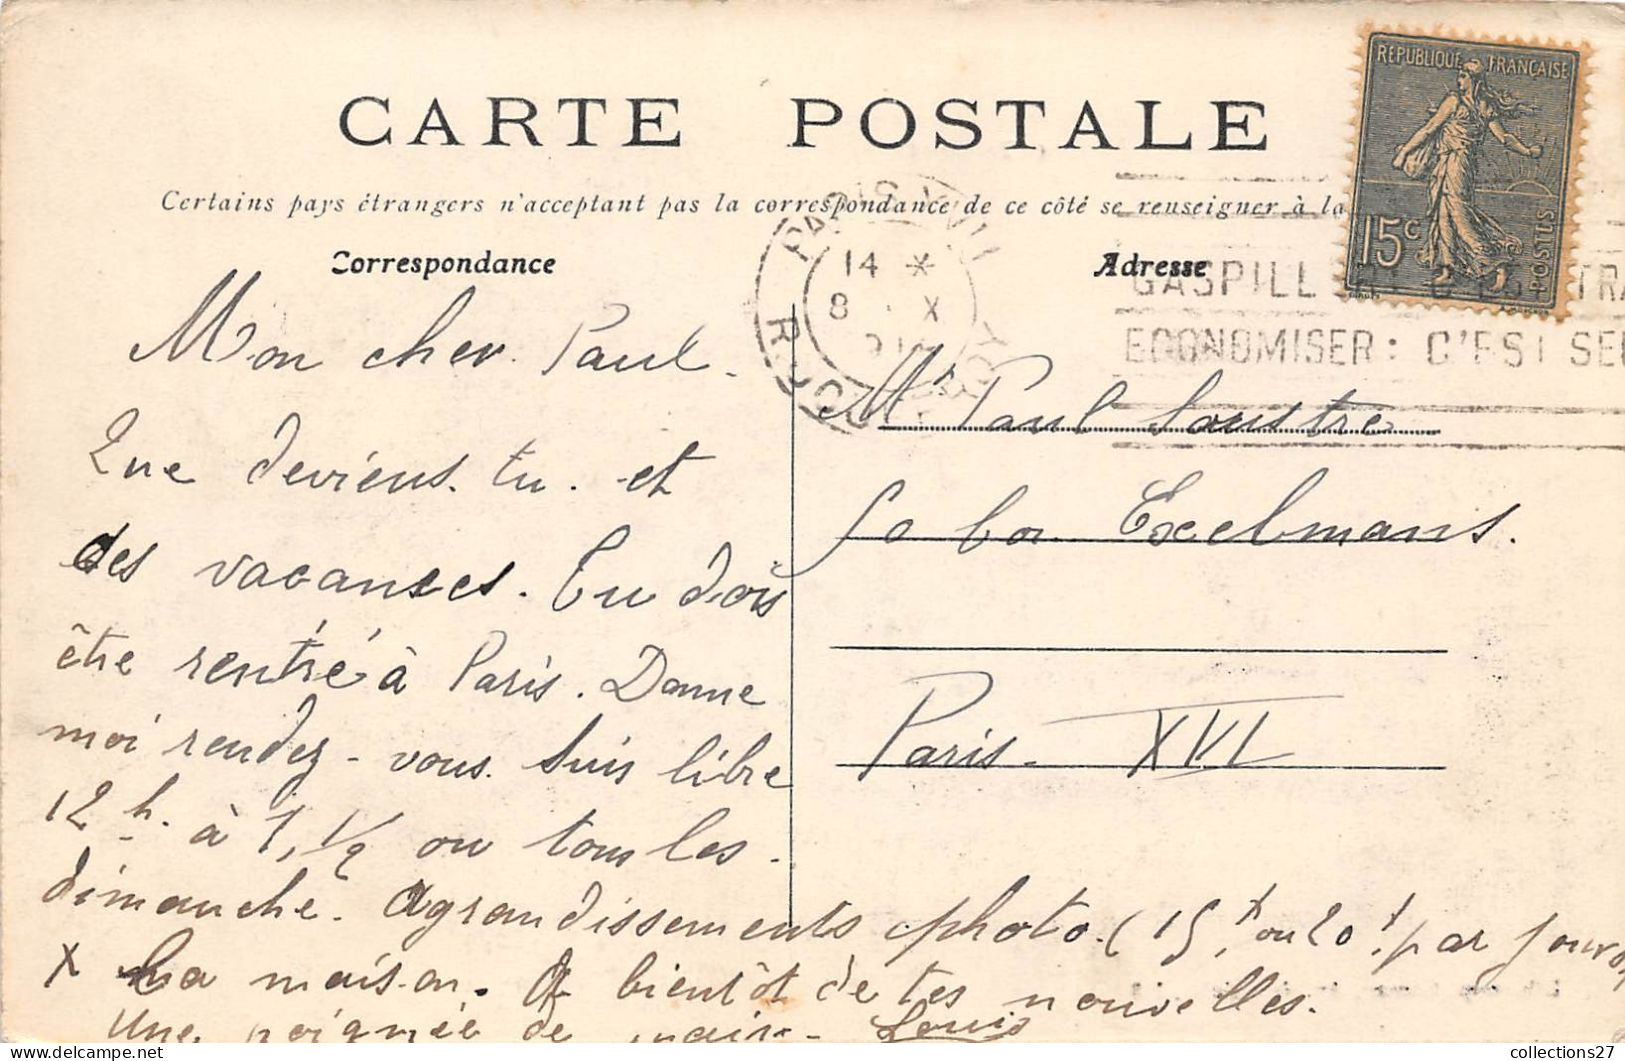 CARTE POSTALE
Certains pays étrangers n'acceptant pas la correspondance de ce côté se renseigner à la
Correspondance
Adresse
REPUBLIQUE FRANÇAISE
15c
POSTES
14 *
8 X
GASPILLER
ECONOMISER: C'EST
Mon cher Paul.
Que deviens-tu. et
des vacances. Tu dois
être rentré à Paris. Donne
moi rendez-vous. Suis libre
12 h. à 1, 1/2 ou tous les
dimanche. Agrandissements photo. (15, ou 20 par jour
x La maison. A bientôt de tes nouvelles.
Une poignée de main. Louis
Mr Paul Soustre
bd Exelmans.
Paris. XVI
collections27